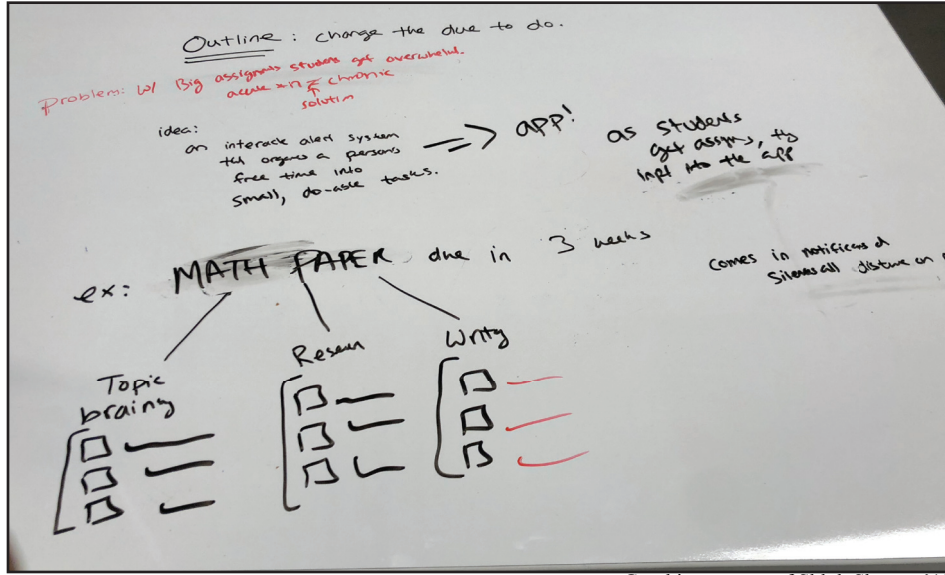 Outline : change the due to do.
Problem: w/ Big assignmts student get overwhelmd.
acute → chronic
solution
idea:
an interack alert system
tht organs a persons
free time into
small, do-able tasks.
app!
as students
get assigns, ty
inpt into the app
ex: MATH PAPER due in 3 weeks
comes in notificans d
on
Topic
brainy
Resean
Writy